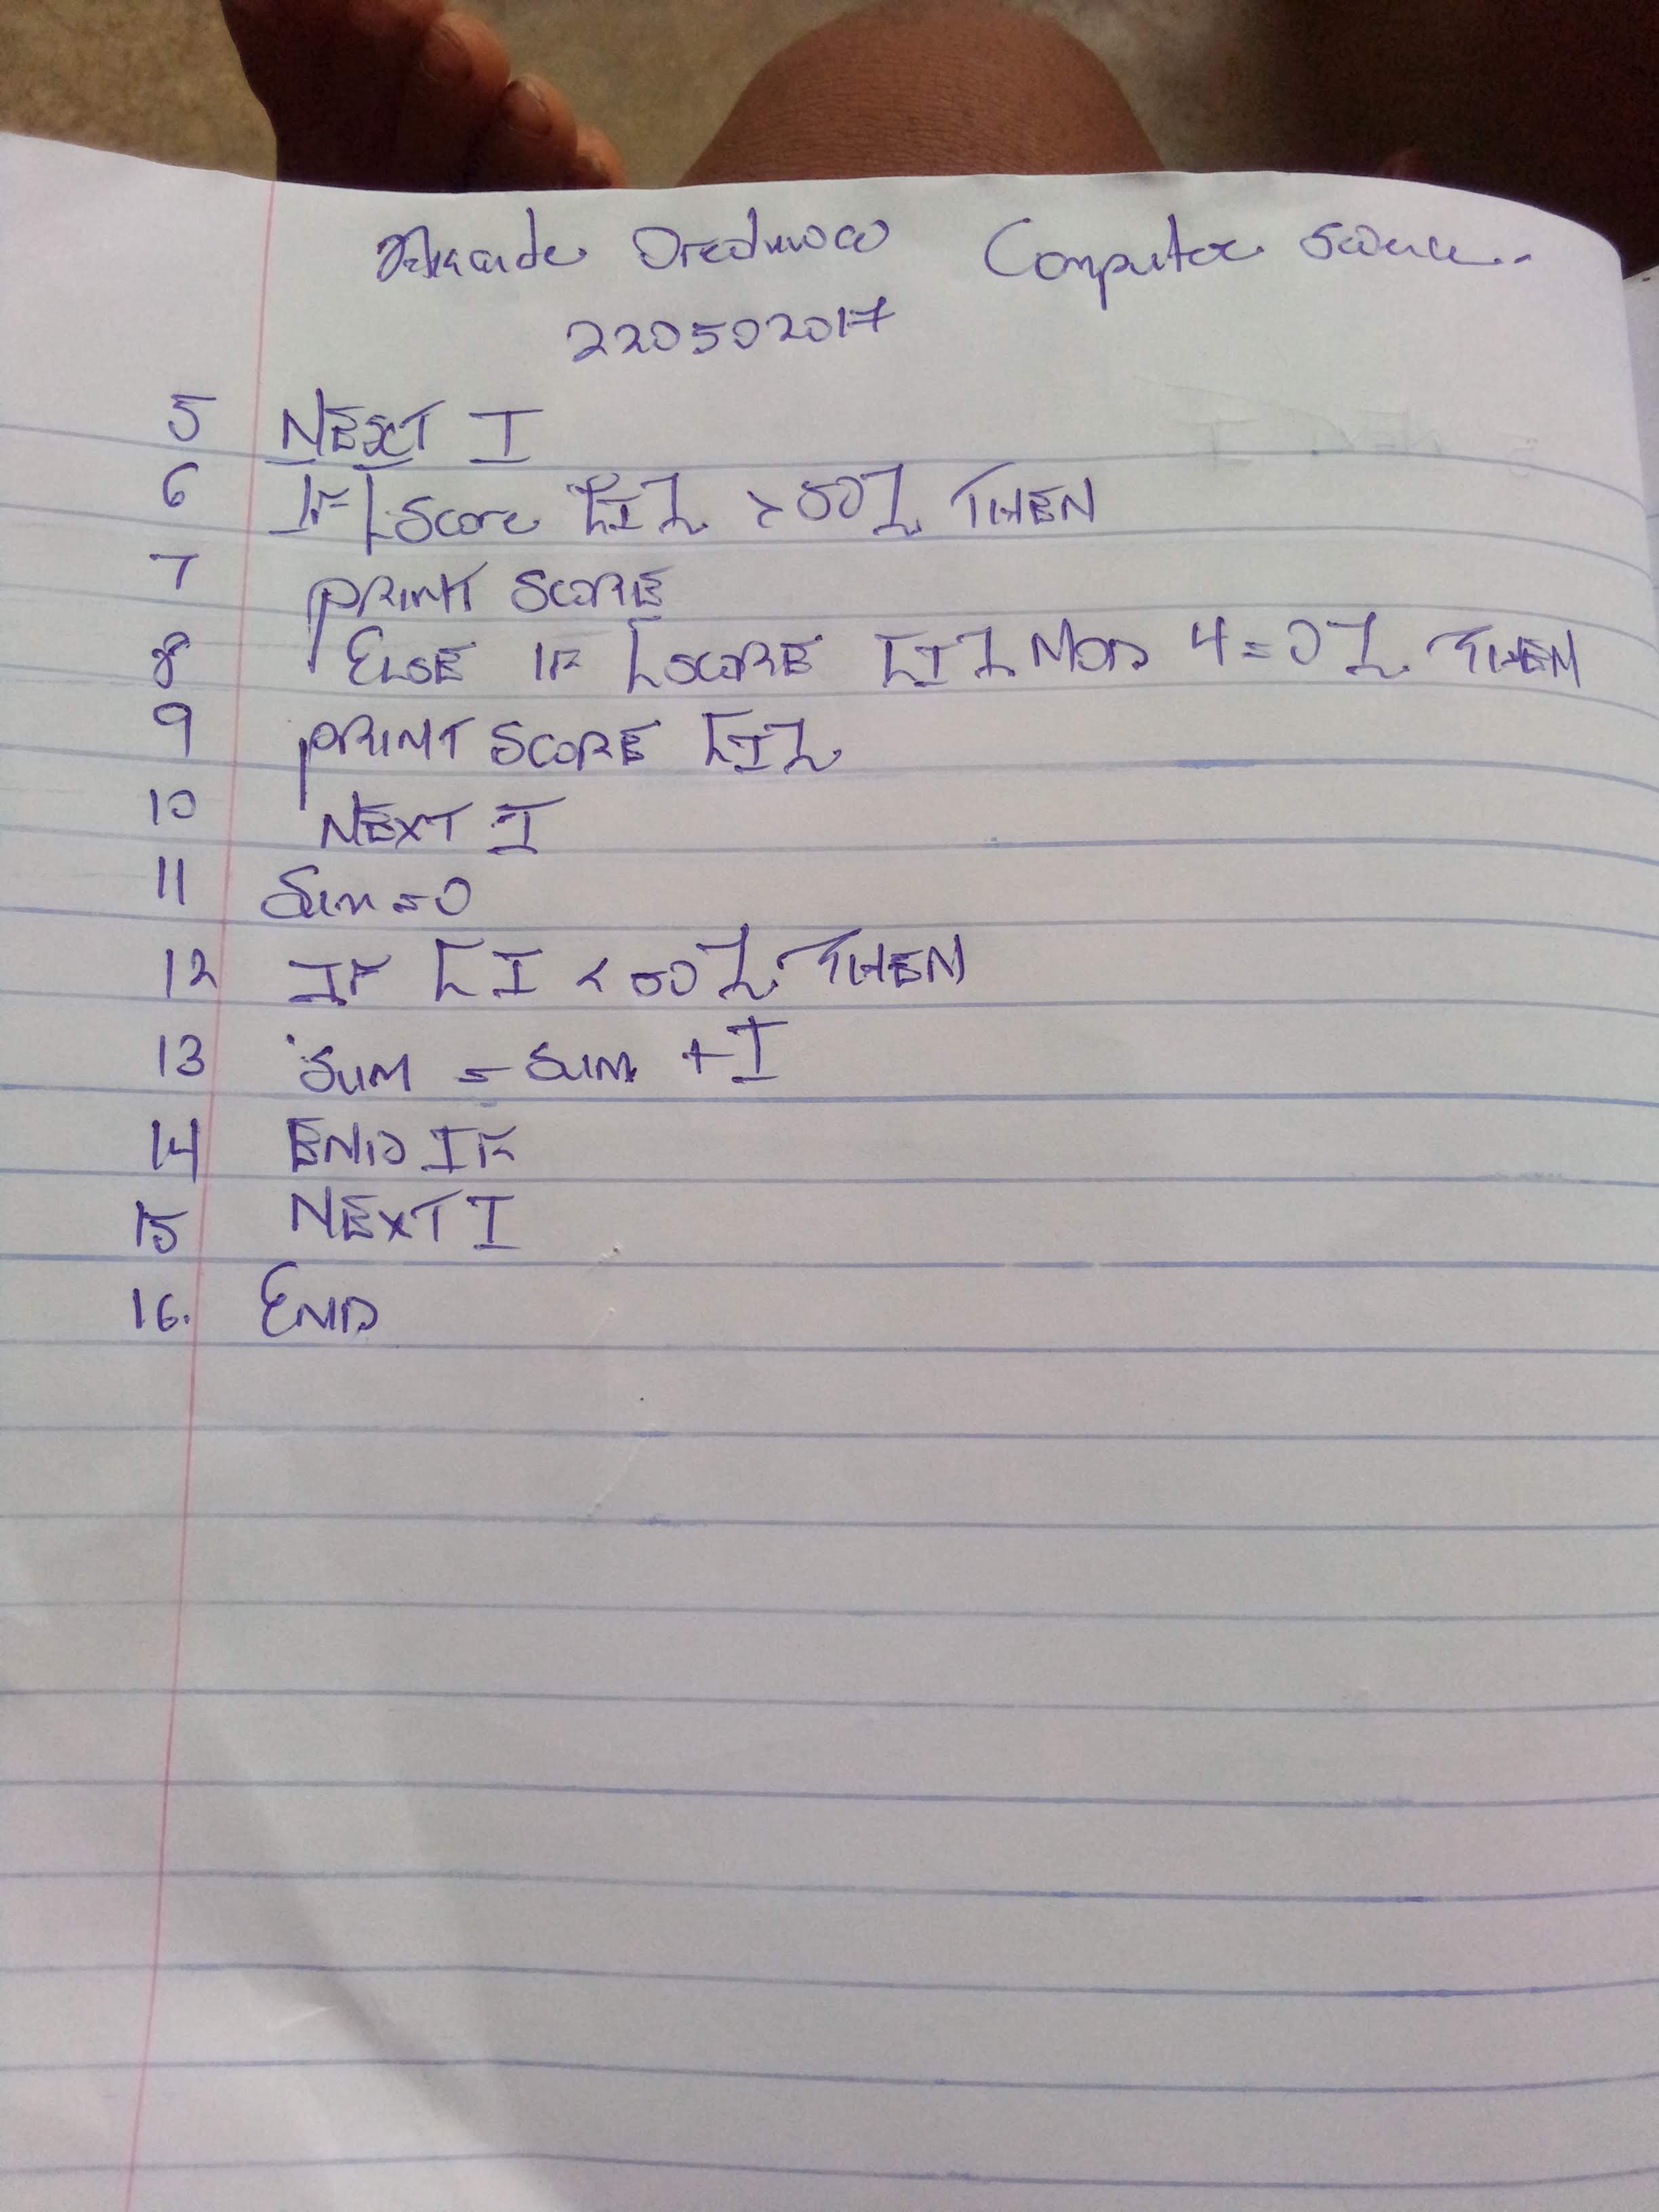 Computer Science..
220502017
5 NEXT I
6 IF [Score [I] > 50] THEN
7 PRINT SCORE
8 ELSE IF [SCORE [I] MOD 4 = 0] THEN
9 PRINT SCORE [I]
10 NEXT I
11 Sum = 0
12 IF [I < 50] THEN
13 SUM = SUM + I
14 END IF
15 NEXT I
16. END